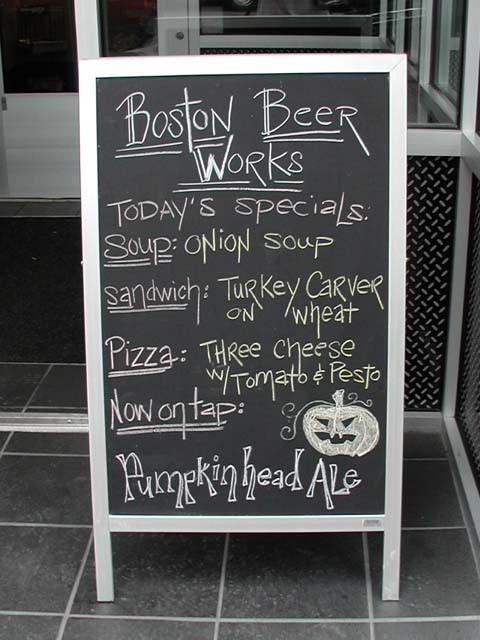 Boston Beer
Works
Today's Specials:
Soup: Onion Soup
Sandwich: Turkey Carver
on Wheat
Pizza: Three Cheese
w/ Tomato & Pesto
Now on tap:
Pumpkinhead Ale